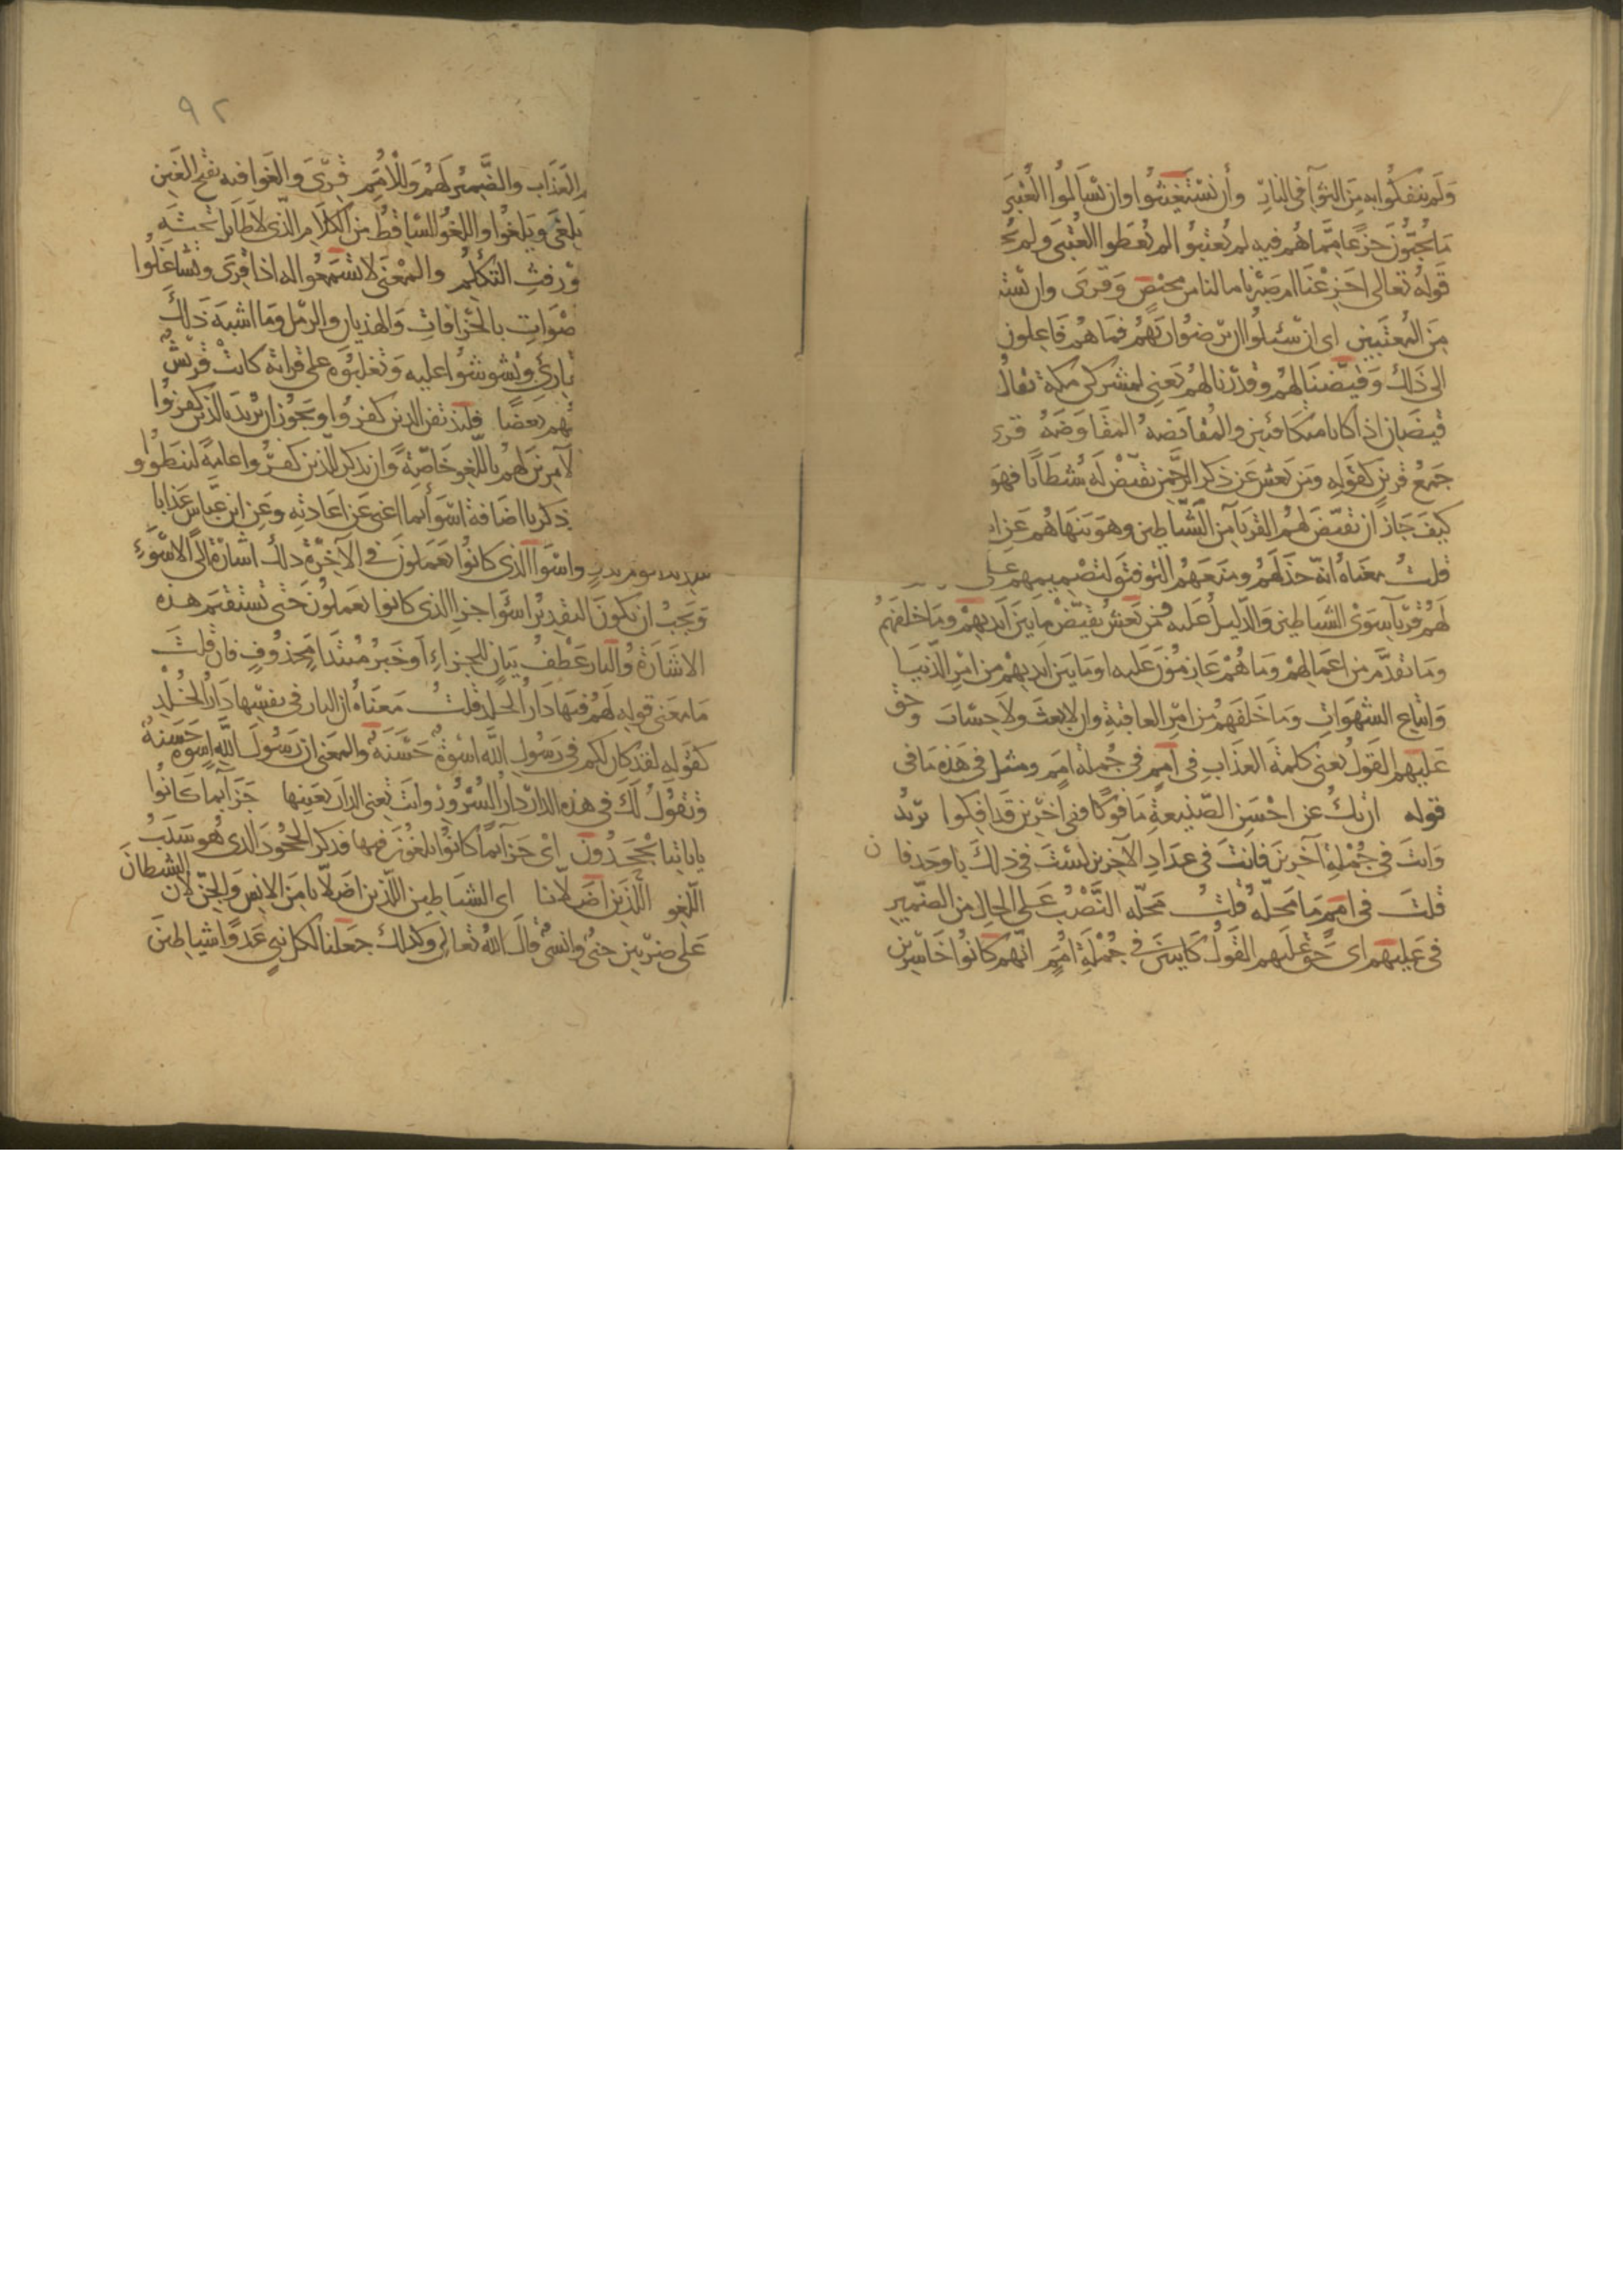 ولم ينفكوا به من الثوآ في النار وان يستعتبوا وان يسألوا العتبى
ما يحبون جزعا مما هم فيه لم يعتبوا لم يعطوا العتبى ولم
قوله تعالى اجزعنا ام صبرنا ما لنا من محيص وقرى وان
من المعتبين اى ان سئلوا ان يرضوا ربهم فما هم فاعلون
الى ذلك وقيضنا لهم وقدرنا لهم يعنى لمشركى مكة يقال
قيضان اذا كانا متكافئين والمقايضة المقاوضة قرنا
جمع قرين كقوله ومن يعش عن ذكر الرحمن نقيض له شيطانا فهو
كيف جاز ان نقيض لهم القرنآ من الشياطين وهو ينهاهم عن
قلت معناه انه خذلهم ومنعهم التوفيق لتصميمهم على
لهم قرنآ سوى الشياطين والدليل عليه ومن يعش نقيض ما بين ايديهم وما خلفهم
وما تقدم من اعمالهم وما هم عازمون عليه او ما بين ايديهم من امر الدنيا
واتباع الشهوات وما خلفهم من امر العاقبة وان لا بعث ولا حساب وحق
عليهم القول يعنى كلمة العذاب فى امم فى جملة امم ومثل فى هذه ما فى
قوله ان تك عن احسن الصنيعة مافوكا ففى اخرين قد افكوا يريد
وانت فى جملة آخرين فانت فى عداد الآخرين لست فى ذلك باوحد فان
قلت فى امم ما محله قلت محله النصب على الحال من الضمير
فى عليهم اى حق عليهم القول كاينين فى جملة امم انهم كانوا خاسرين
٩٢
العذاب والضمير لهم وللامم قرى والغوا فيه بفتح الغين
يلغى ويلغوا واللغو الساقط من الكلام الذى لا طايل تحته
ورفث التكلم والمعنى لا تسمعوا له اذا قرى وتشاغلوا
صوات بالخرافات والهذيان والرمل وما اشبه ذلك
وتشوشوا عليه وتغلبوه على قراته كانت قريش
بعضا فلنذيقن الذين كفروا ويجوز ان يريد بالذين كفروا
لآمرين لهم باللغو خاصة وان يذكر الذين كفروا عامة لينطووا
ذكر باضافة اسوأ بما اغنى عن اعادته وعن ابن عباس عذابا
شديدا يوم بدر واسوا الذى كانوا يعملون فى الآخرة ذلك اشارة الى الاسوء
ويجب ان يكون التقدير اسوا جزا الذى كانوا يعملون حتى تستقيم هذه
الاشارة والنار عطف بيان للجزاء او خبر مبتدا محذوف فان قلت
ما معنى قوله لهم فيها دار الخلد قلت معناه ان النار فى نفسها دار الخلد
كقوله لقد كان لكم فى رسول الله اسوة حسنة والمعنى ان رسول الله اسوة حسنة
وتقول لك فى هذه الدار دار السرور وانت تعنى الدار بعينها جزآ بما كانوا
باياتنا يجحدون اى جزآ بما كانوا يلغون فيها فذكر الجحود الذى هو سبب
اللغو الذين اضلانا اى الشياطين اللذين اضلانا من الانس والجن لان الشيطان
على ضربين جنى وانسى قال الله تعالى وكذلك جعلنا لكل نبى عدوا شياطين